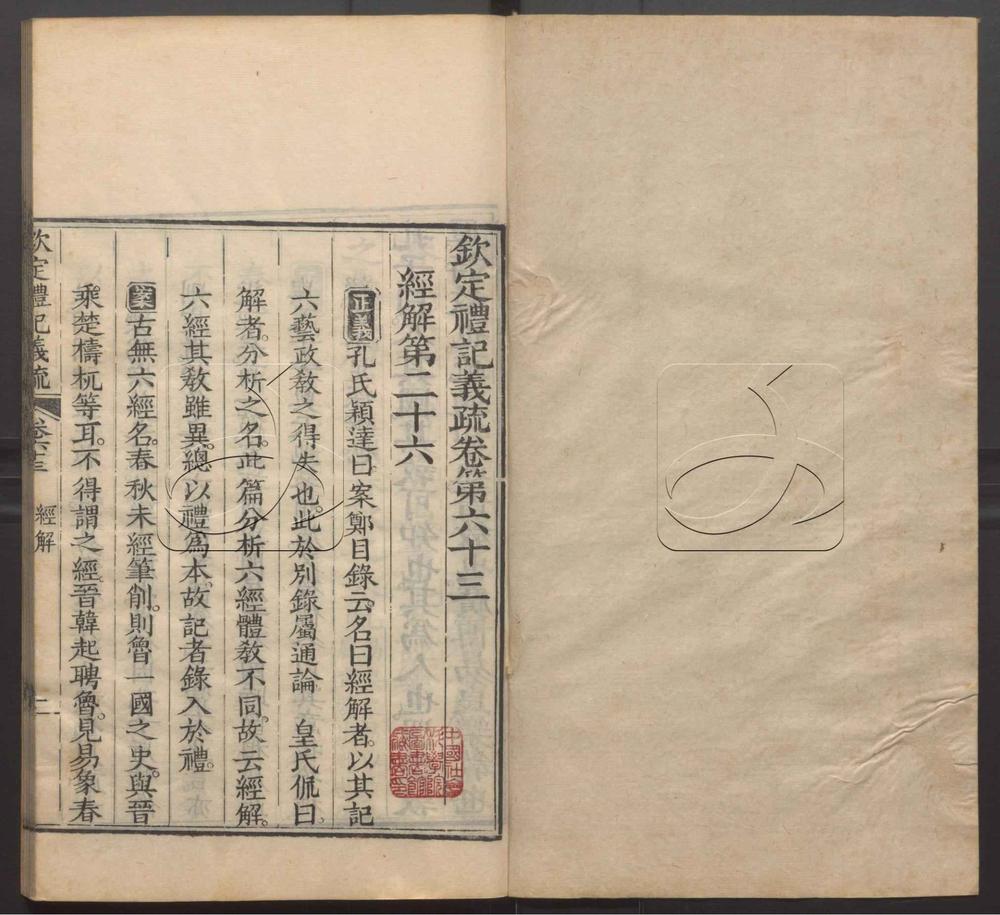 欽定禮記義疏卷第六十三
經解第二十六
正義孔氏穎達曰案鄭目錄云名曰經解者以其記
六藝政敎之得失也此於別錄屬通論　皇氏侃曰
解者分析之名此篇分析六經體敎不同故云經解
六經其敎雖異總以禮爲本故記者錄入於禮
案古無六經名春秋未經筆削則魯一國之史與晉
乘楚檮杌等耳不得謂之經晉韓起聘魯見易象春
欽定禮記義疏 卷六十三 經解